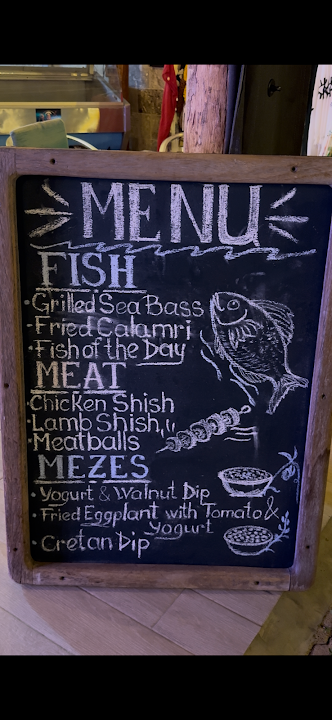 MENU
FISH
· Grilled Sea Bass
· Fried Calamri
· Fish of the Day
MEAT
· Chicken Shish
· Lamb Shish
· Meatballs
MEZES
· Yogurt & Walnut Dip
· Fried Eggplant with Tomato &
Yogurt
· Cretan Dip